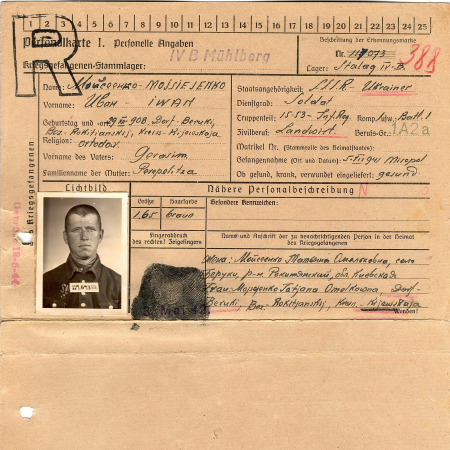 1 2 3 4 5 6 7 8 9 10 11 12 13 14 15 16 17 18 19 20 21 22 23 24 25
R
Personalkarte I. Personelle Angaben
IV B Mühlberg
Beschriftung der Erkennungsmarke
Nr.
388
Kriegsgefangenen-Stammlager:
Lager: Stalag IV-B
Name: Мойсеенко - MOJSIEJENKO
Staatsangehörigkeit: Ukrainer
Vorname: Иван IWAN
Dienstgrad: Soldat
Geburtstag und -ort: Dorf-Beruki,
Truppenteil: Komp. usw.: Batt. 1
Bez.-Rokitjanskij, Kreis-Kijewskaja
Zivilberuf: Landwirt. Berufs-Gr.: 1A2a
Religion: ortodox.
Matrikel Nr. (Stammrolle des Heimatstaates):
Vorname des Vaters: Gerasim
Gefangennahme (Ort und Datum): Miropol
Familienname der Mutter:
Ob gesund, krank, verwundet eingeliefert: gesund
Des Kriegsgefangenen
Lichtbild
Nähere Personalbeschreibung
Größe
Haarfarbe
Besondere Kennzeichen:
1.65
braun
Fingerabdruck
des rechten! Zeigefingers
Name und Anschrift der zu benachrichtigenden Person in der Heimat
des Kriegsgefangenen
Жена: Мойсеенко Татьяна Омельковна, село
Беруки, р-н Рокитянский, обл. Киевская
Frau: Tatjana Omelkowna, Dorf-
Beruki, Bez. Rokitjanskij, Kreis - Kijewskaja